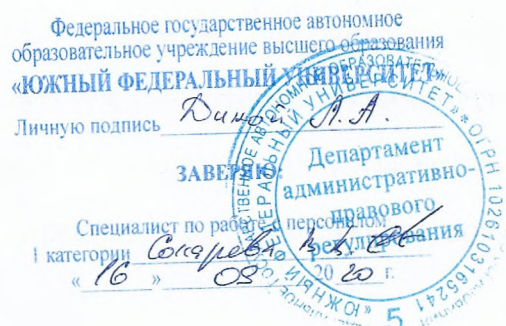 Федеральное государственное автономное
образовательное учреждение высшего образования
«ЮЖНЫЙ ФЕДЕРАЛЬНЫЙ УНИВЕРСИТЕТ»
Личную подпись А.А.
ЗАВЕРЯЮ:
Специалист по работе с персоналом
1 категории
« 16 » 09 2020 г.
Департамент
административно-
правового
регулирования
ФЕДЕРАЛЬНЫЙ УНИВЕРСИТЕТ» * ОГРН 1026103165241
«ЮЖНЫЙ
5